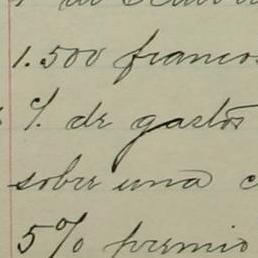 1.500 francos
% de gastos
sobre una
5% premio